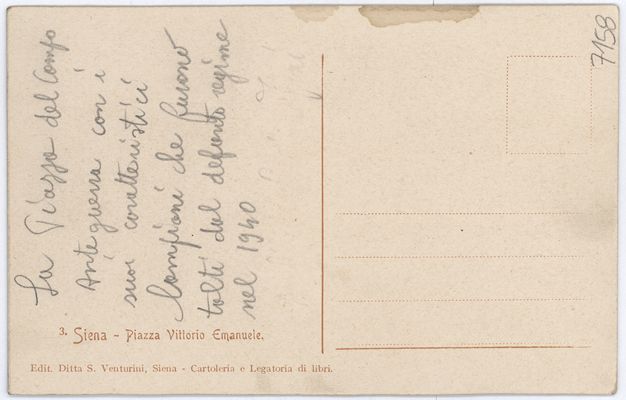 La Piazza del Campo
Anteguerra con i
suoi caratteristici
Lampioni che furono
tolti dal defonto regime
nel 1940
7158
3. Siena - Piazza Vittorio Emanuele.
Edit. Ditta S. Venturini, Siena - Cartoleria e Legatoria di libri.